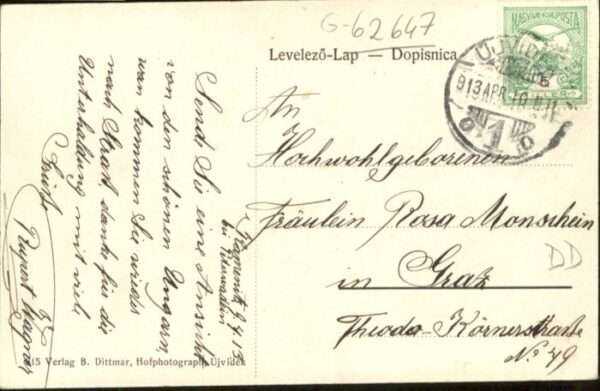 G-62647
Levelező-Lap — Dopisnica
MAGYAR KIR. POSTA
ÚJVIDÉK
913 APR 10
An
Hochwohlgeborenen
Fräulein Rosa Monschein
in Graz
Theodor Körnerstrasse
No 49
DD
9.4.13
Send Sie eine Ansicht
von den schönen Ungarn
wan kommen Sie wieder
nach Straß danke für die
Unterhaltung mit viele
Grüße
Rupert Wagner
15 Verlag B. Dittmar, Hofphotograph, Újvidék